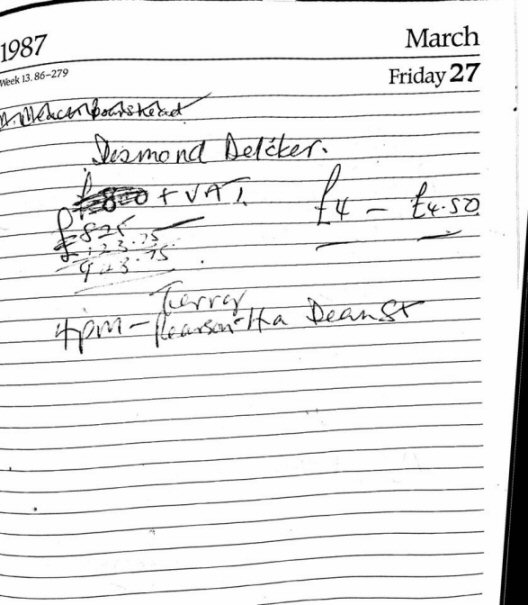 1987
March
Week 13. 86-279
Friday 27
Desmond
£800 + VAT.
£4 - £4.50
£825
123.75
923.75
4pm - Pearson 4a Dean St